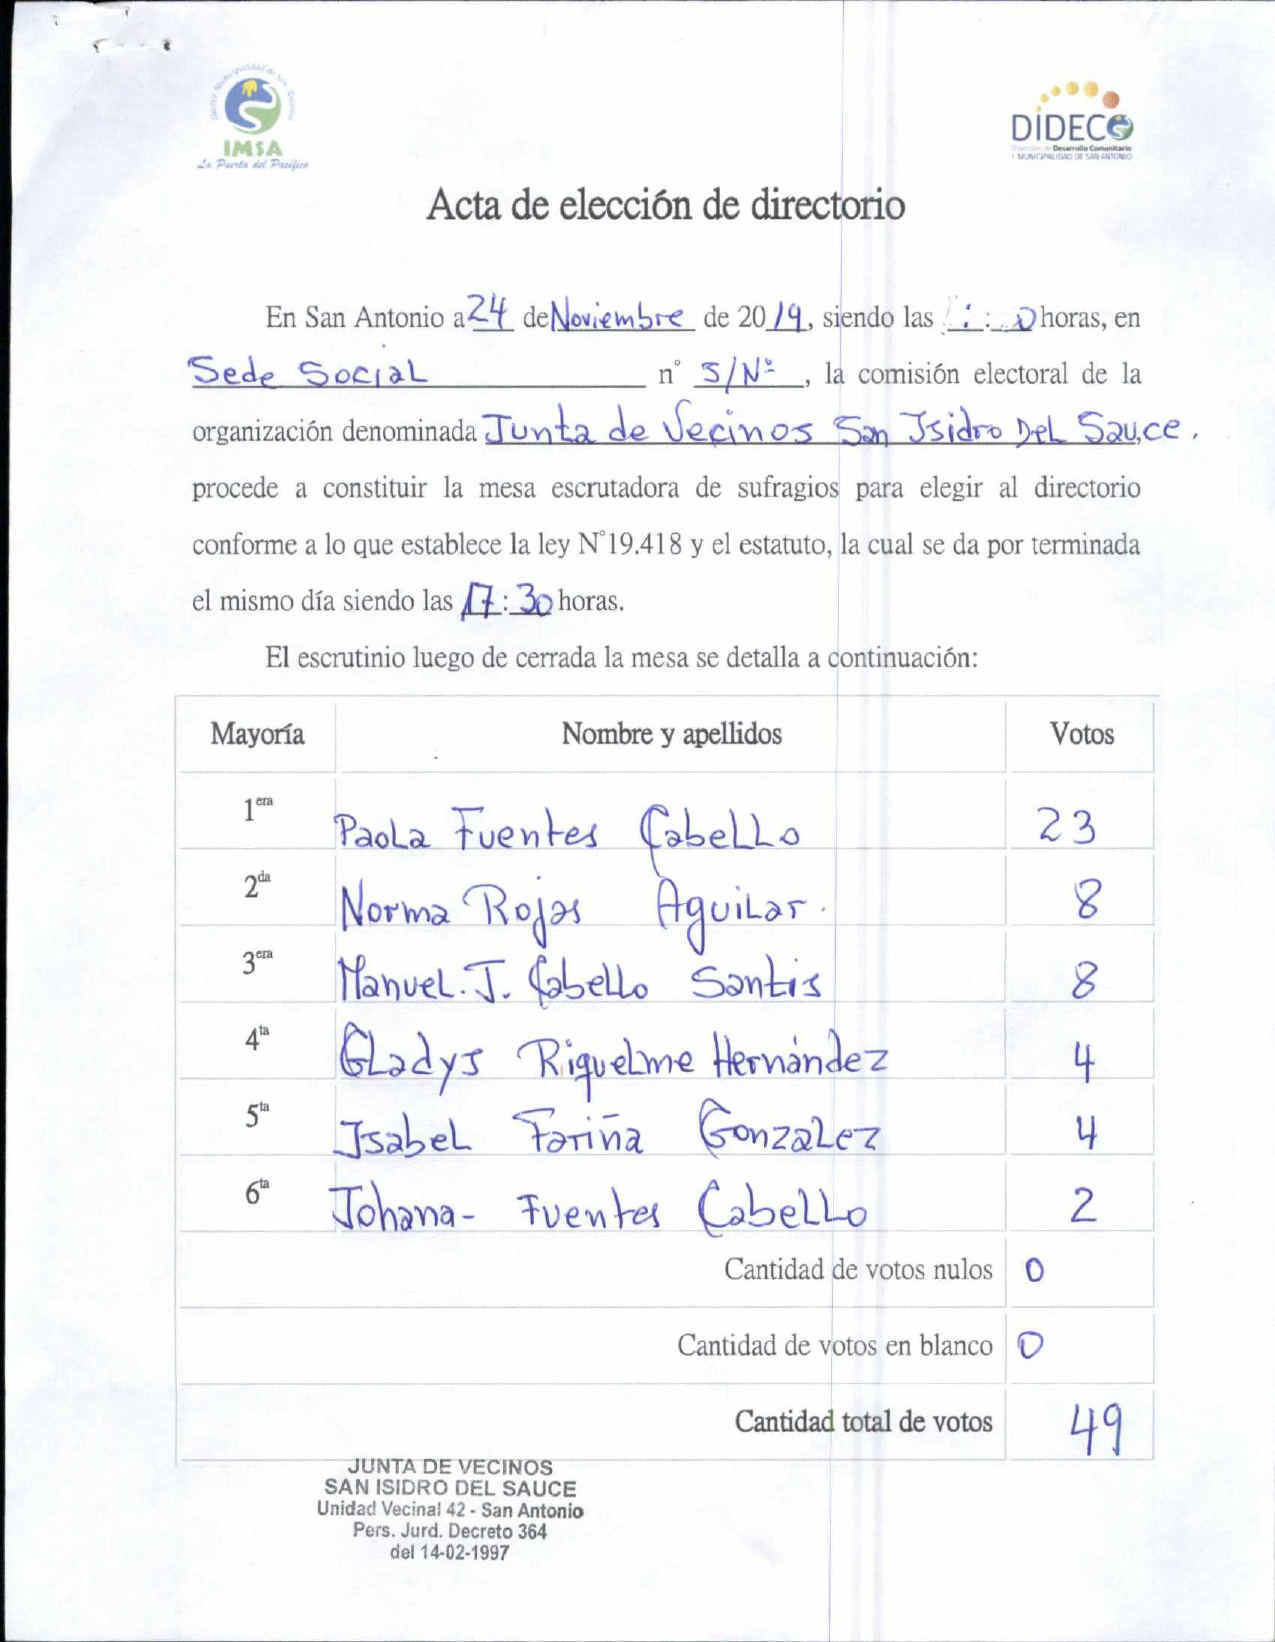 IMSA
La Puerta del Pacífico
DIDECO
Desarrollo Comunitario
I. MUNICIPALIDAD DE SAN ANTONIO
Acta de elección de directorio
En San Antonio a 24 de Noviembre de 2019, siendo las : horas, en
Sede Social n° S/Nº, la comisión electoral de la
organización denominada Junta de Vecinos San Isidro Del Sauce.
procede a constituir la mesa escrutadora de sufragios para elegir al directorio
conforme a lo que establece la ley N°19.418 y el estatuto, la cual se da por terminada
el mismo día siendo las 17:30 horas.
El escrutinio luego de cerrada la mesa se detalla a continuación:
Mayoría Nombre y apellidos Votos
1era Paola Fuentes Cabello 23
2da Norma Rojas Aguilar. 8
3era Manuel. J. Cabello Santis 8
4ta Gladys Riquelme Hernández 4
5ta Isabel Fariña Gonzalez 4
6ta Johana- Fuentes Cabello 2
Cantidad de votos nulos 0
Cantidad de votos en blanco 0
Cantidad total de votos 49
JUNTA DE VECINOS
SAN ISIDRO DEL SAUCE
Unidad Vecinal 42 - San Antonio
Pers. Jurd. Decreto 364
del 14-02-1997